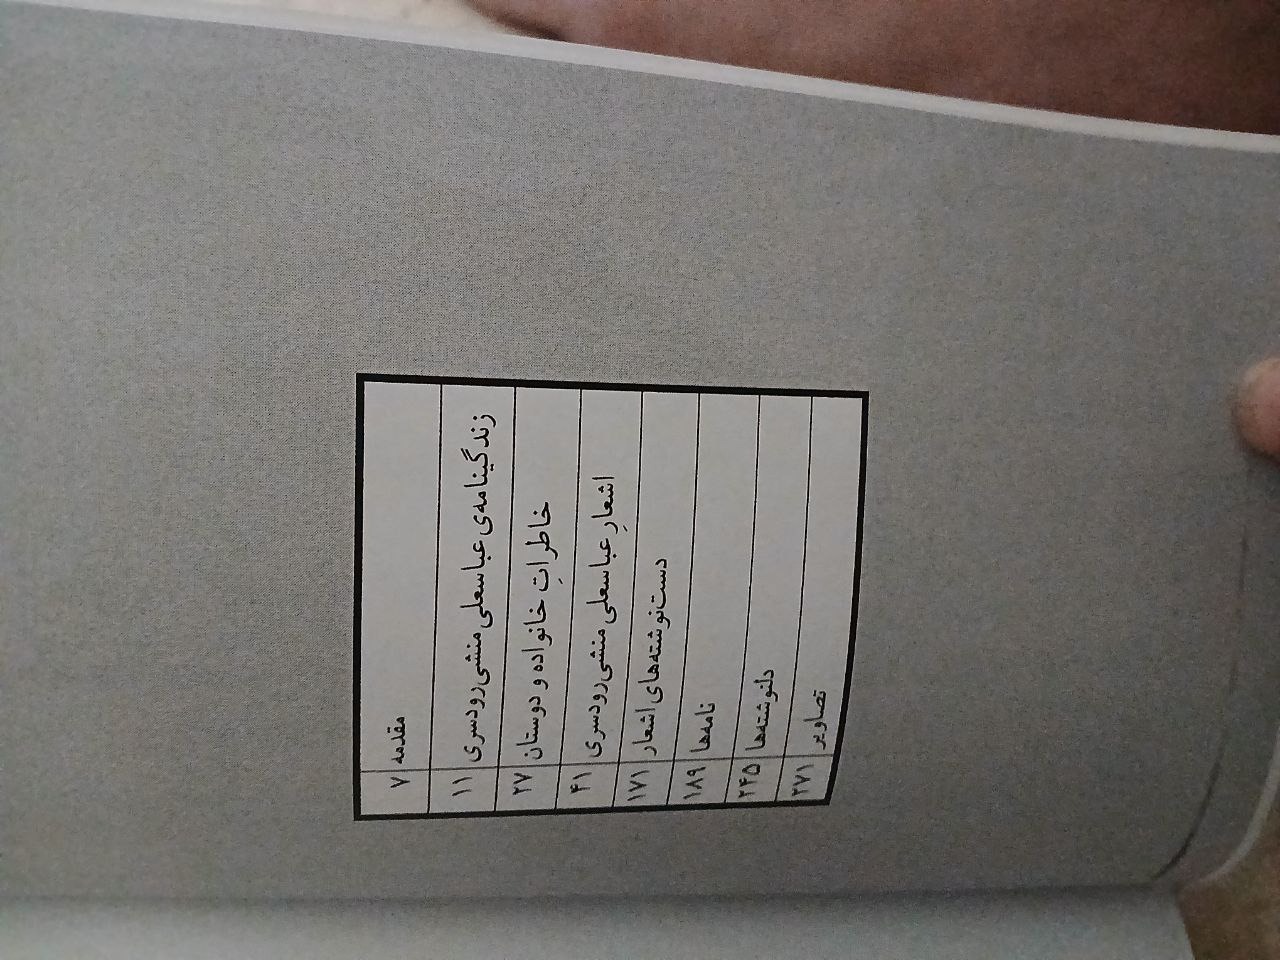 مقدمه ۷
زندگینامه‌ی عباسعلی منشی‌رودسری ۱۱
خاطراتِ خانواده و دوستان ۲۷
اشعارِ عباسعلی منشی‌رودسری ۴۱
دست‌نوشته‌های اشعار ۱۷۱
نامه‌ها ۱۸۹
دلنوشته‌ها ۲۴۵
تصاویر ۲۷۱